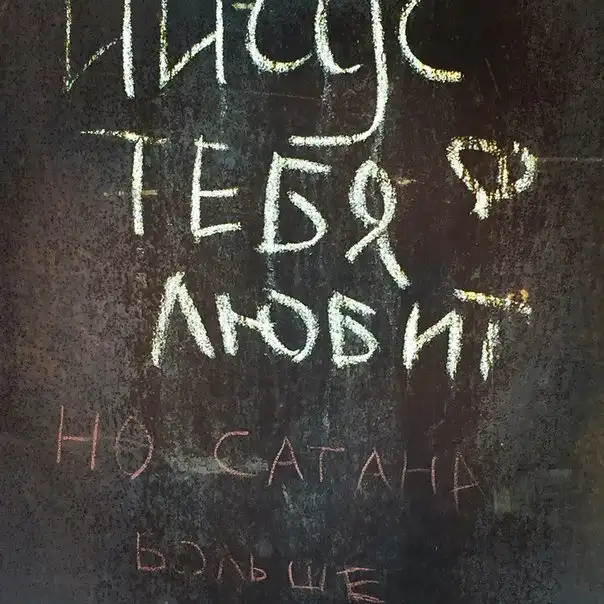 ИИСУС
ТЕБЯ
ЛЮБИТ
НО САТАНА
БОЛЬШЕ